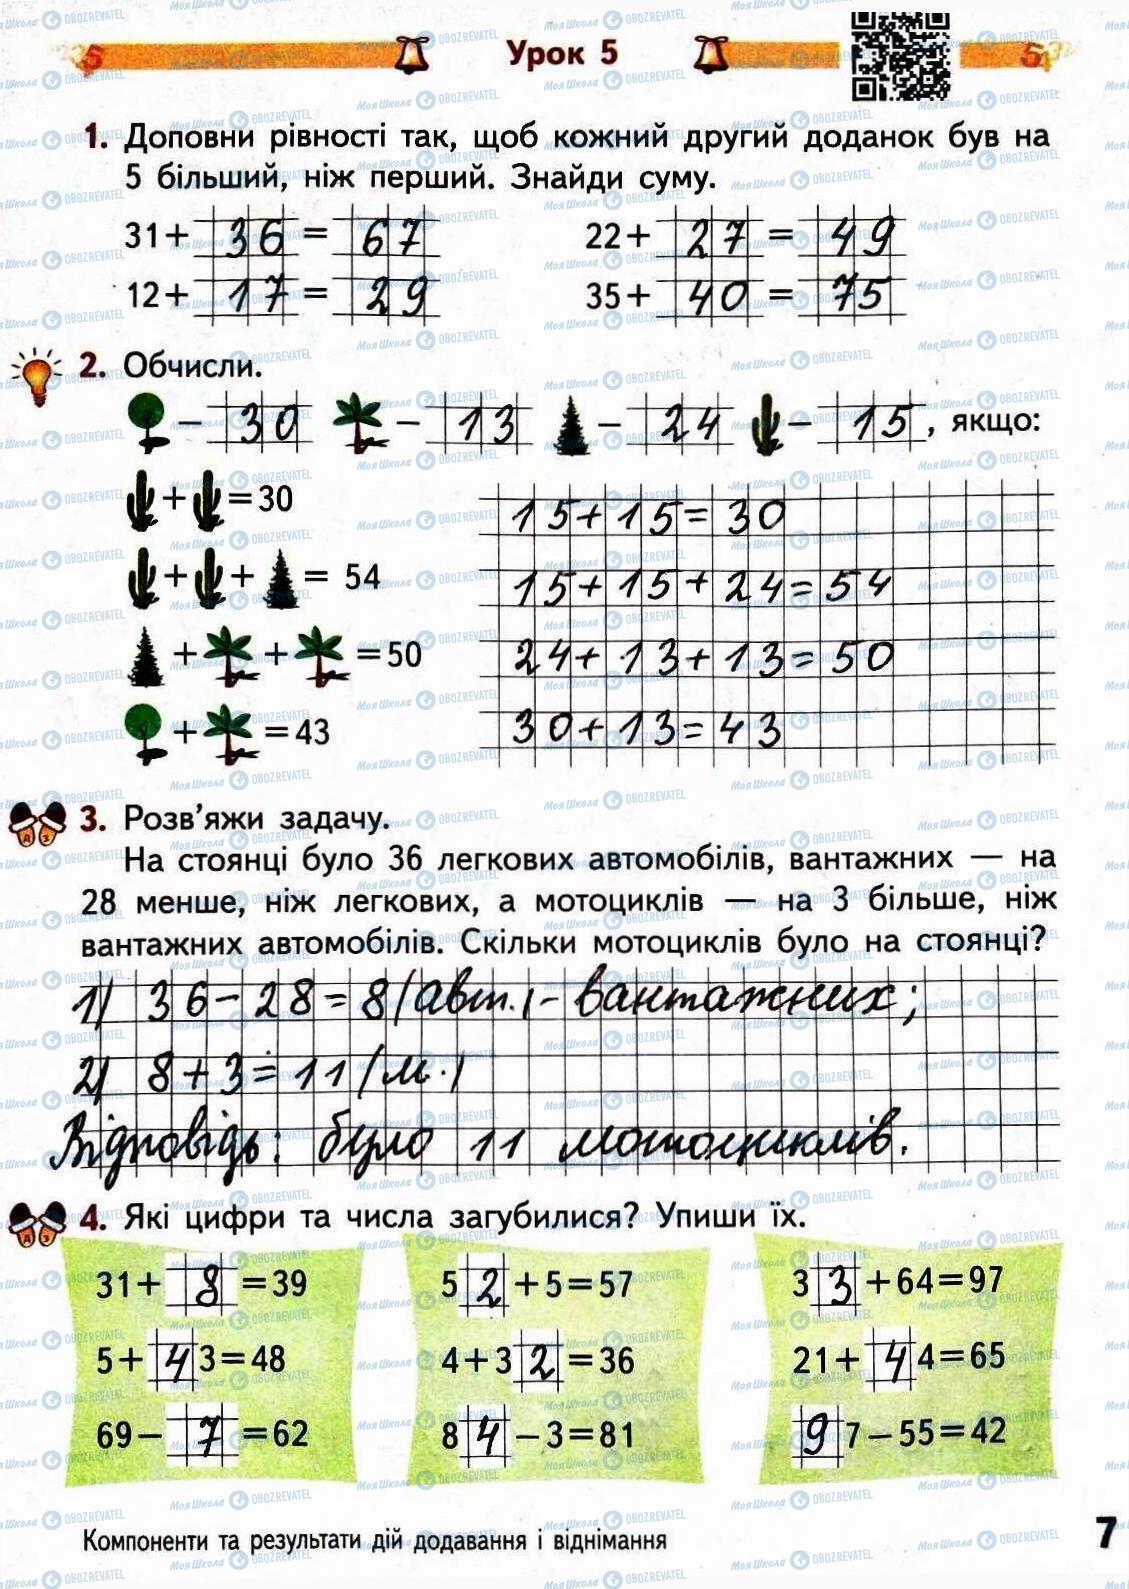 5 Урок 5 5
1. Доповни рівності так, щоб кожний другий доданок був на
5 більший, ніж перший. Знайди суму.
31+ 36 = 67 22+ 27 = 49
12+ 17 = 29 35+ 40 = 75
2. Обчисли.
– 30 – 13 – 24 – 15, якщо:
+ =30 15+15=30
+ + = 54 15+15+24=54
+ + =50 24+13+13=50
+ =43 30+13=43
3. Розв’яжи задачу.
На стоянці було 36 легкових автомобілів, вантажних — на
28 менше, ніж легкових, а мотоциклів — на 3 більше, ніж
вантажних автомобілів. Скільки мотоциклів було на стоянці?
1) 36-28=8(авт.)-вантажних;
2) 8+3=11(м.)
Відповідь: було 11 мотоциклів.
4. Які цифри та числа загубилися? Упиши їх.
31+ 8 =39 5 2 +5=57 3 3 +64=97
5+ 4 3=48 4+3 2 =36 21+ 4 4=65
69– 7 =62 8 4 –3=81 9 7–55=42
Компоненти та результати дій додавання і віднімання 7
МояШкола OBOZREVATEL